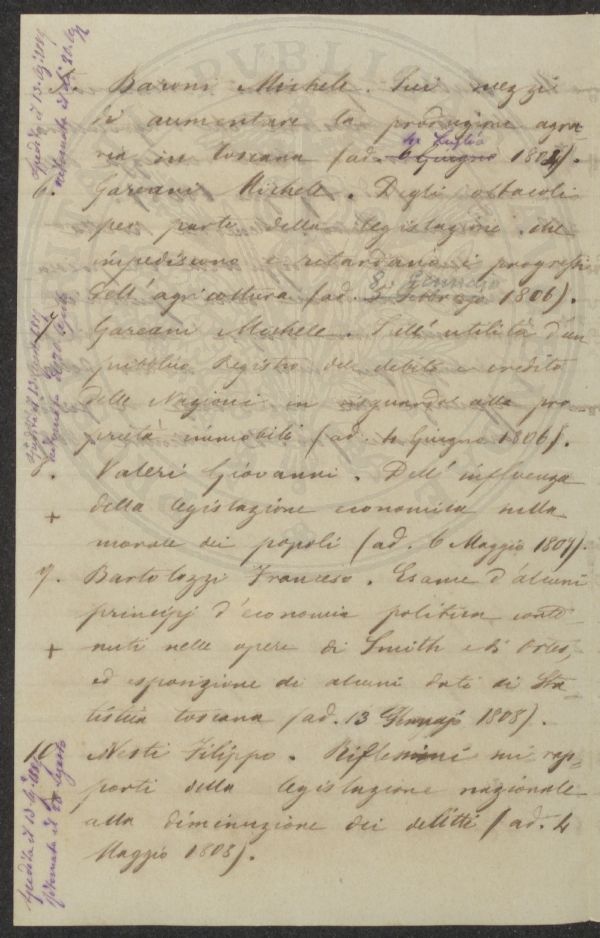 5. Baroni Michele. Sui mezzi
di aumentare la produzione agra
ria in toscana (ad. 6 Giugno 1804).
4 Luglio
6. Garzani Michele. Degli ostacoli
per parte della legislazione che
impediscono e ritardano i progressi
dell'agricoltura (ad. 3 Febbrajo 1806).
8 Gennajo
7. Garzani Michele. Dell'utilità d'un
pubblico Registro del debito e credito
delle Nazioni in riguardo alla pro-
prietà immobili (ad. 4 Giugno 1806).
8. Valeri Giovanni. Dell'influenza
+ della legislazione economica nella
morale dei popoli (ad. 6 Maggio 1807).
9. Bartolozzi Francesco. Esame d'alcuni
principj d'economia politica conte
+ nuti nelle opere di Smith e di Ortes,
ed esposizione di alcuni dati di Sta-
tistica toscana (ad. 13 Gennajo 1808).
10. Nesti Filippo. Riflessioni sui rap-
porti della legislazione nazionale
alla diminuzione dei delitti (ad. 4
Maggio 1808).
Spedita il 13
ritornata il
Spedita il 13
Spedita il 13
ritornata il 28 Agosto